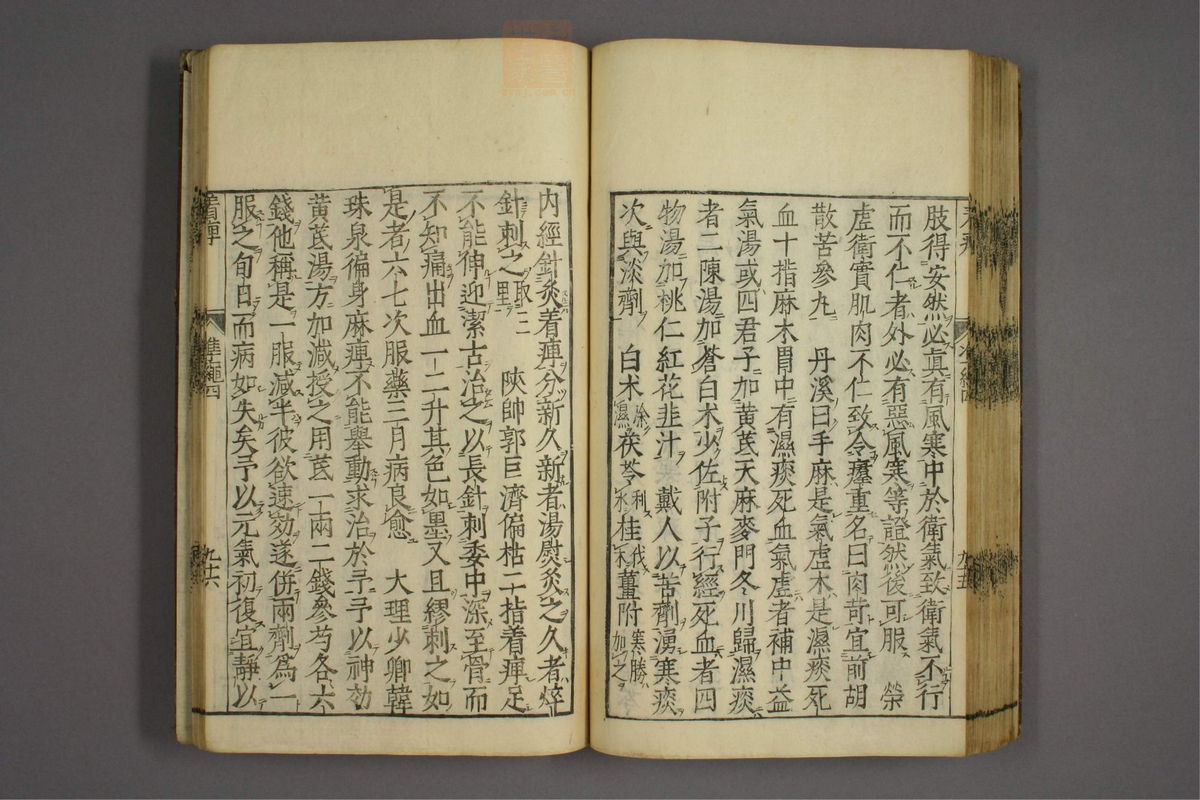 肢得安然必真有風寒中於衛氣致衛氣不行
而不仁者外必有惡風寒等證然後可服 榮
虛衛實肌肉不仁致令㿏重名曰肉苛宜前胡
散苦參丸 丹溪曰手麻是氣虛木是濕痰死
血十指麻木胃中有濕痰死血氣虛者補中益
氣湯或四君子加黃芪天麻麥門冬川歸濕痰
者二陳湯加蒼白术少佐附子行經死血者四
物湯加桃仁紅花韭汁 戴人以苦劑湧寒痰
次與淡劑 白术除濕茯苓利水桂伐木薑附寒勝加之
内經針灸着痺分新久新者湯熨灸之久者焠
針刺之取三里 陝帥郭巨濟偏枯二指着痺足
不能伸迎潔古治之以長針刺委中深至骨而
不知痛出血一二升其色如墨又且繆刺之如
是者六七次服藥三月病良愈 大理少卿韓
珠泉徧身麻痺不能舉動求治於予予以神効
黃芪湯方加減授之用芪一兩二錢參芍各六
錢他稱是一服減半彼欲速効遂併兩劑爲一
服之旬日而病如失矣予以元氣初復宜靜以
着痺
準繩四
九十六